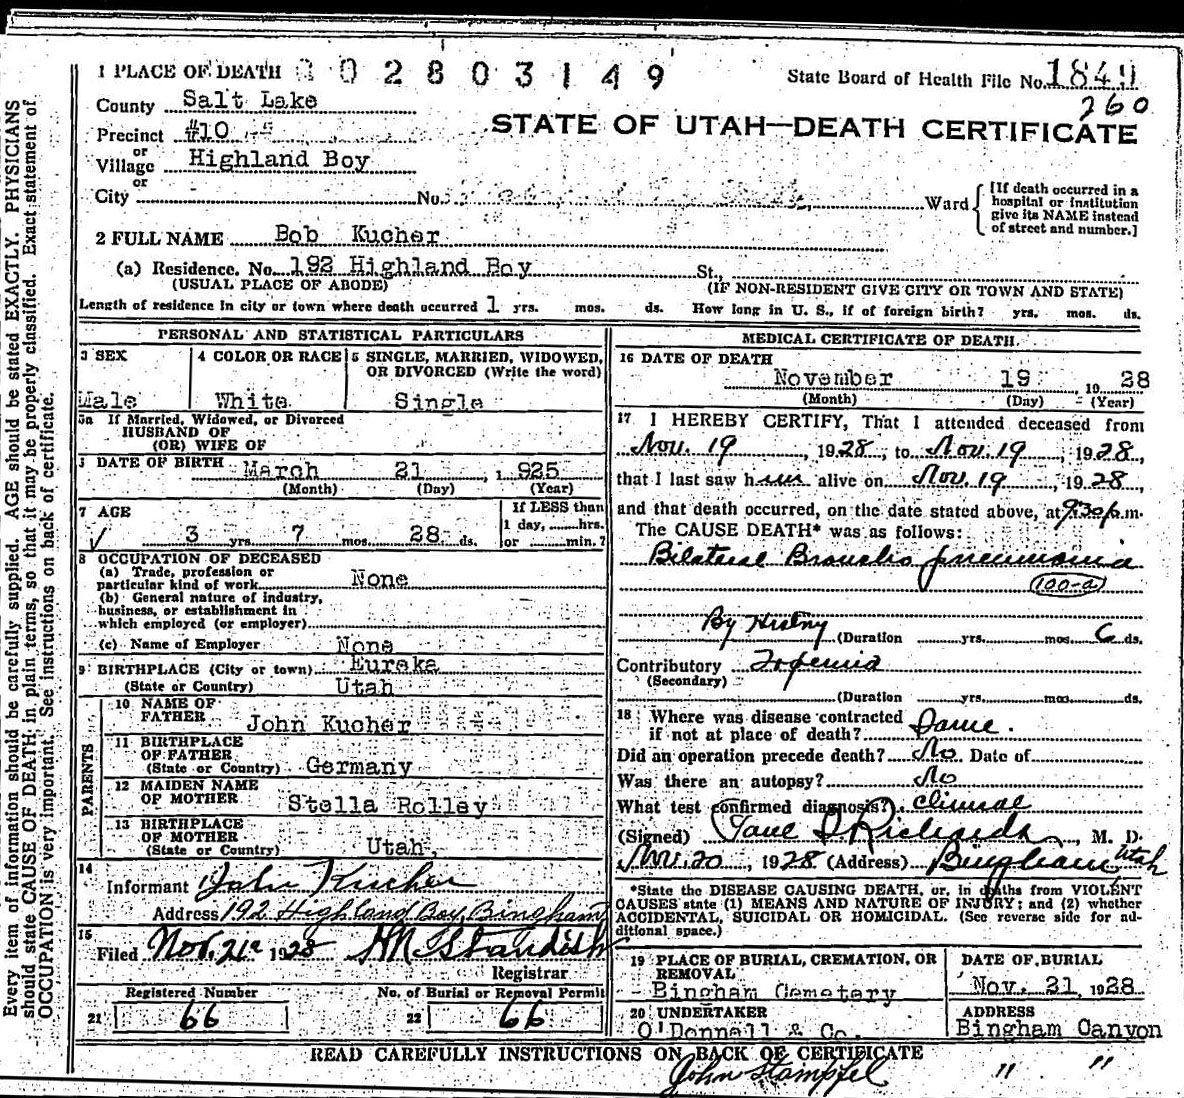 1 PLACE OF DEATH 2 8 0 3 1 4 9 State Board of Health File No. 1849
260
County Salt Lake
STATE OF UTAH—DEATH CERTIFICATE
Precinct #10
or
Village Highland Boy
or
City No. Ward
[If death occurred in a hospital or institution give its NAME instead of street and number.]
2 FULL NAME Bob Kucher
(a) Residence. No. 192 Highland Boy St.,
(USUAL PLACE OF ABODE) (IF NON-RESIDENT GIVE CITY OR TOWN AND STATE)
Length of residence in city or town where death occurred 1 yrs. mos. ds. How long in U. S., if of foreign birth? yrs. mos. ds.
PERSONAL AND STATISTICAL PARTICULARS
3 SEX
Male
4 COLOR OR RACE
White
5 SINGLE, MARRIED, WIDOWED,
OR DIVORCED (Write the word)
Single
5a If Married, Widowed, or Divorced
HUSBAND OF
(OR) WIFE OF
DATE OF BIRTH March 21, 1 925
(Month) (Day) (Year)
7 AGE
3 yrs. 7 mos. 28 ds.
If LESS than
1 day, hrs.
or min.?
8 OCCUPATION OF DECEASED
(a) Trade, profession or
particular kind of work None
(b) General nature of industry,
business, or establishment in
which employed (or employer)
(c) Name of Employer None
9 BIRTHPLACE (City or town) Eureka
(State or Country) Utah
PARENTS
10 NAME OF
FATHER John Kucher
11 BIRTHPLACE
OF FATHER
(State or Country) Germany
12 MAIDEN NAME
OF MOTHER Stella Rolley
13 BIRTHPLACE
OF MOTHER
(State or Country) Utah,
14
Informant John Kucher
Address 192 Highland Boy, Bingham
15
Filed Nov. 21 1928 Standish
Registrar
Registered Number
21 66
No. of Burial or Removal Permit
22 66
MEDICAL CERTIFICATE OF DEATH
16 DATE OF DEATH
November 19 19 28
(Month) (Day) (Year)
17 I HEREBY CERTIFY, That I attended deceased from
Nov. 19, 1928, to Nov. 19, 1928,
that I last saw him alive on Nov 19, 1928,
and that death occurred, on the date stated above, at 9:30 p.m.
The CAUSE DEATH* was as follows:
Bilateral Broncho pneumonia
100-a
By History (Duration yrs. mos. 6 ds.
Contributory Toxemia
(Secondary)
(Duration yrs. mos. ds.
18 Where was disease contracted
if not at place of death? Same.
Did an operation precede death? No Date of
Was there an autopsy? No
What test confirmed diagnosis? Clinical
(Signed) Paul S Richards, M. D.
Nov. 20, 1928 (Address) Bingham Utah
*State the DISEASE CAUSING DEATH, or, in deaths from VIOLENT
CAUSES state (1) MEANS AND NATURE OF INJURY; and (2) whether
ACCIDENTAL, SUICIDAL OR HOMICIDAL. (See reverse side for ad-
ditional space.)
19 PLACE OF BURIAL, CREMATION, OR
REMOVAL
Bingham Cemetary
DATE OF BURIAL
Nov. 21, 1928
20 UNDERTAKER
O'Donnell & Co.
ADDRESS
Bingham Canyon
READ CAREFULLY INSTRUCTIONS ON BACK OF CERTIFICATE
John Stampfel " "
Every item of information should be carefully supplied. AGE should be stated EXACTLY. PHYSICIANS
should state CAUSE OF DEATH in plain terms, so that it may be properly classified. Exact statement of
OCCUPATION is very important. See instructions on back of certificate.